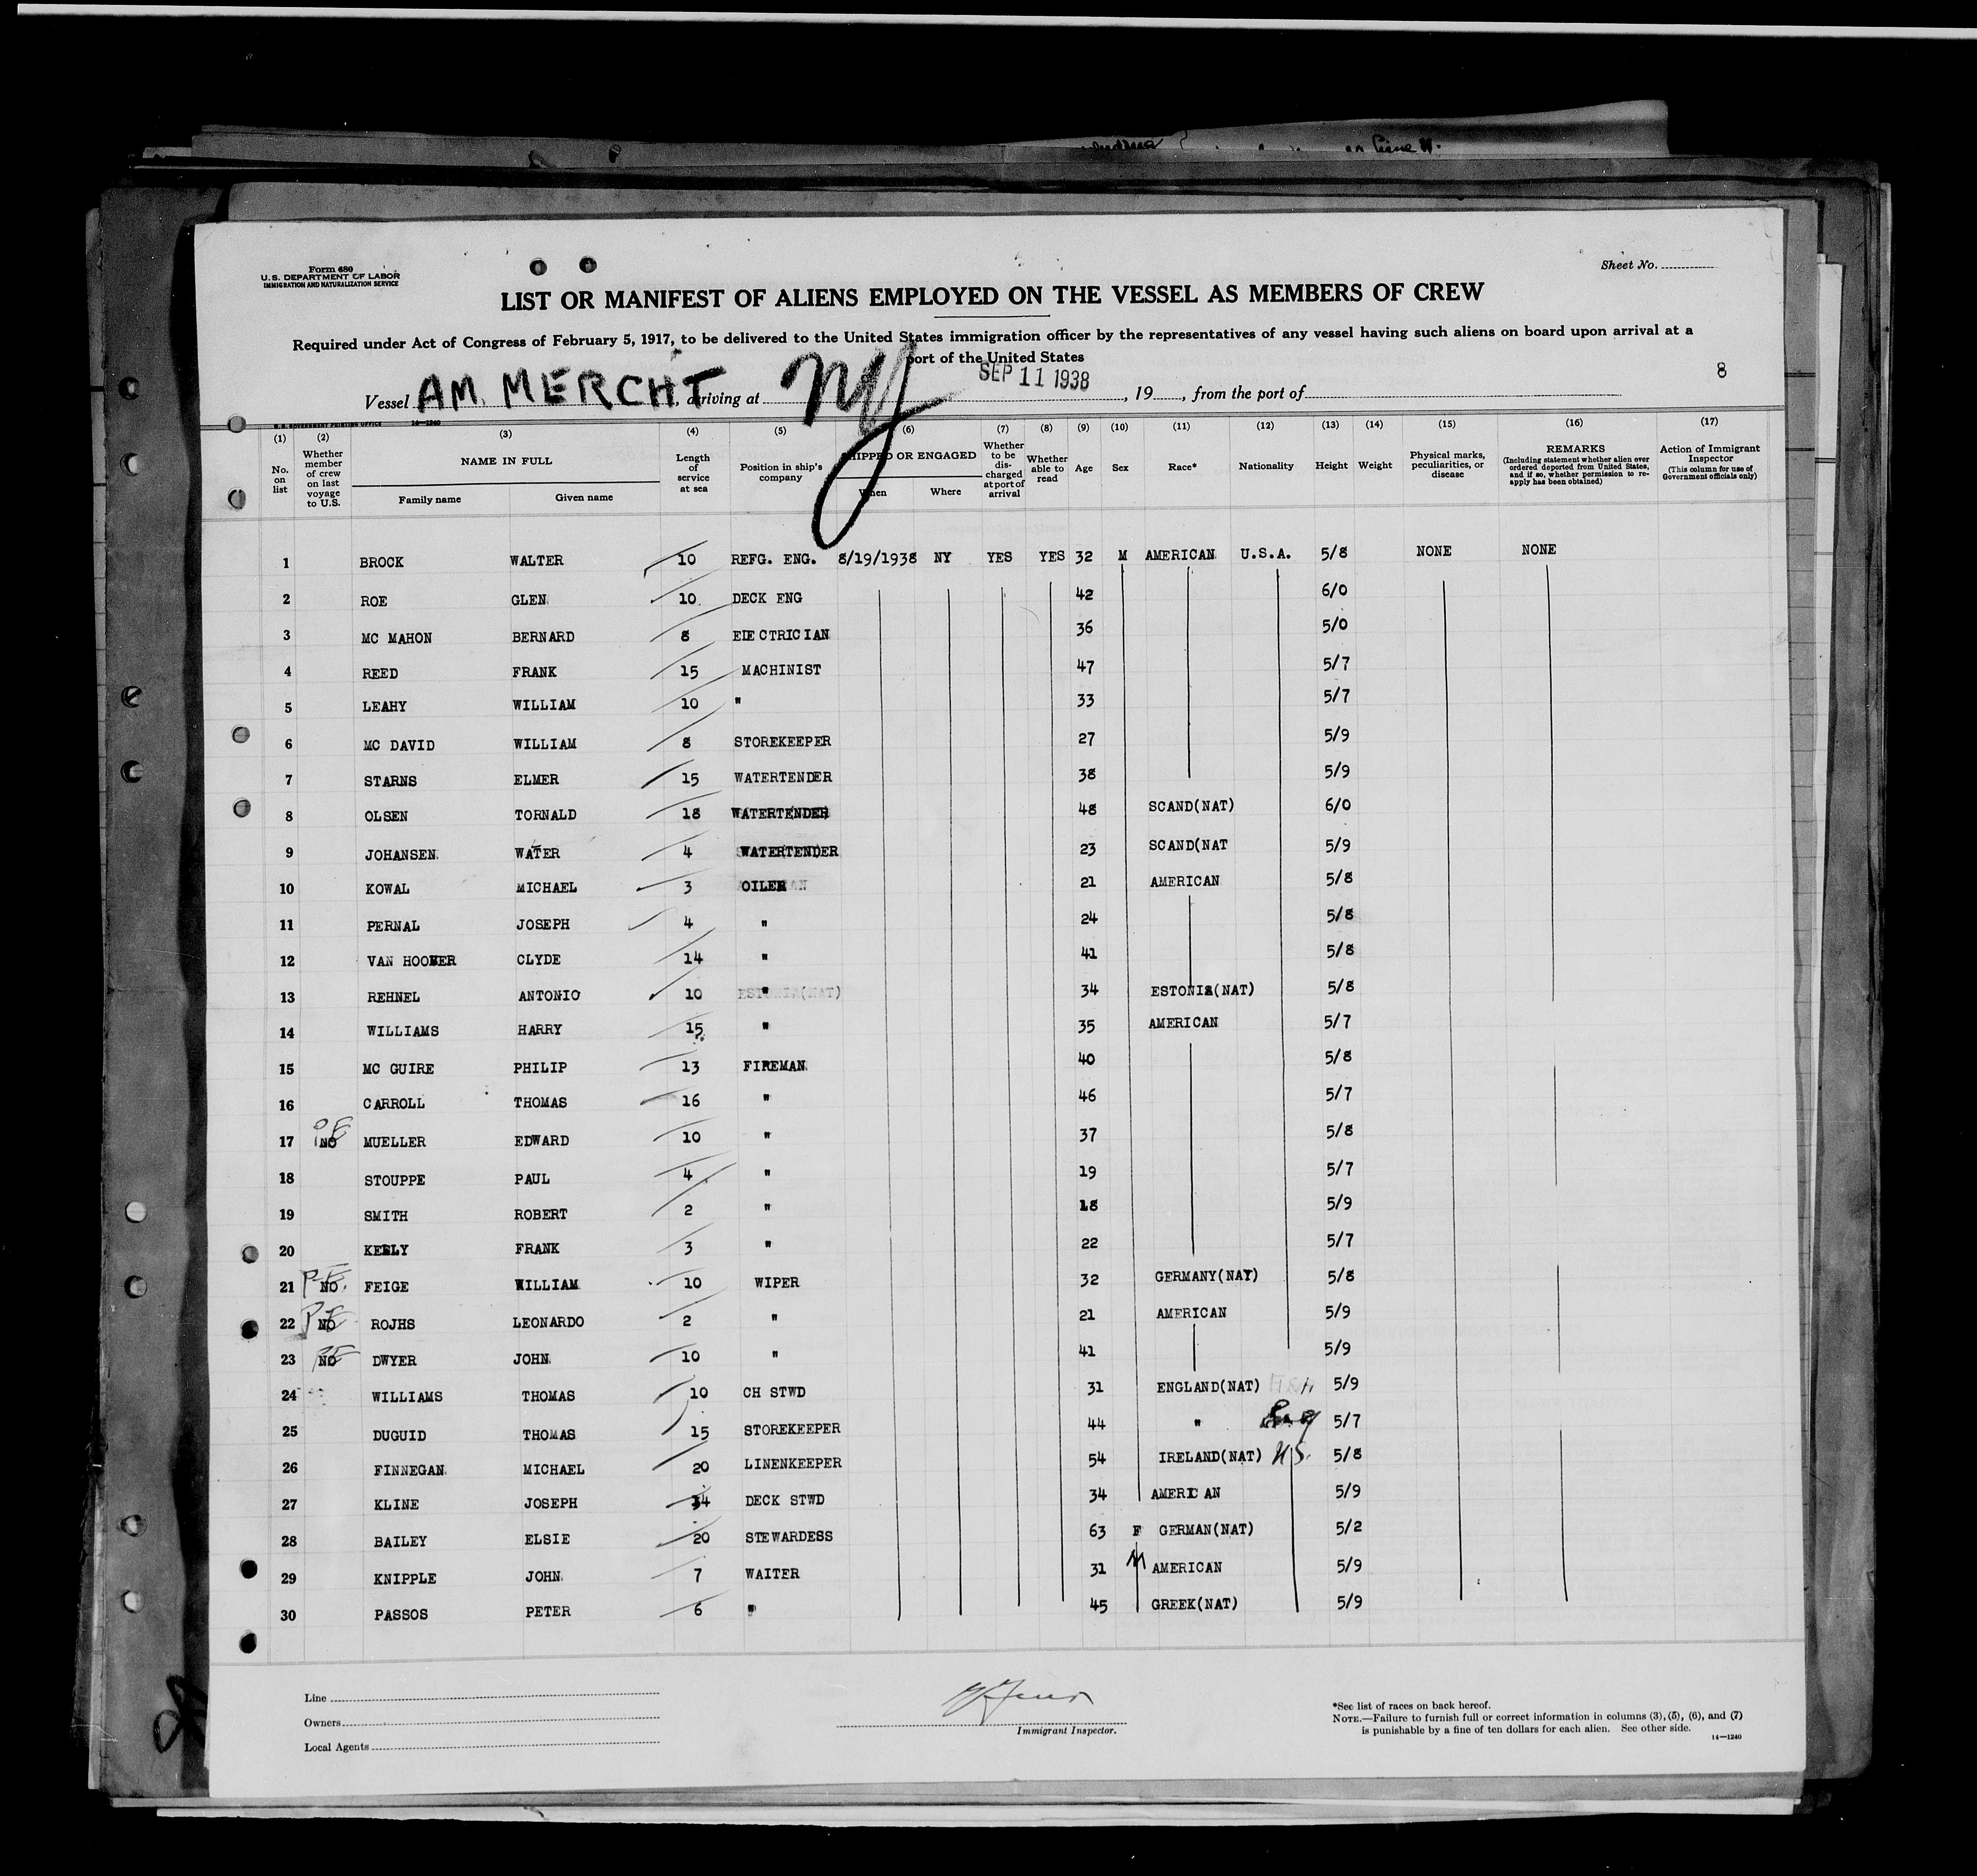 Form 680
U. S. DEPARTMENT OF LABOR
IMMIGRATION AND NATURALIZATION SERVICE
Sheet No.
LIST OR MANIFEST OF ALIENS EMPLOYED ON THE VESSEL AS MEMBERS OF CREW
Required under Act of Congress of February 5, 1917, to be delivered to the United States immigration officer by the representatives of any vessel having such aliens on board upon arrival at a
port of the United States
8
Vessel AM. MERCHT, arriving at NY SEP 11 1938, 19, from the port of
U.S. GOVERNMENT PRINTING OFFICE 14—1240
(1) (2) (3) (4) (5) (6) (7) (8) (9) (10) (11) (12) (13) (14) (15) (16) (17)
No. on list
Whether member of crew on last voyage to U.S.
NAME IN FULL
Family name Given name
Length of service at sea
Position in ship's company
SHIPPED OR ENGAGED
When Where
Whether to be discharged at port of arrival
Whether able to read
Age Sex Race* Nationality Height Weight
Physical marks, peculiarities, or disease
REMARKS
(Including statement whether alien ever ordered deported from United States, and if so, whether permission to reapply has been obtained)
Action of Immigrant Inspector
(This column for use of Government officials only)
1 BROCK WALTER 10 REFG. ENG. 8/19/1938 NY YES YES 32 M AMERICAN U.S.A. 5/8 NONE NONE
2 ROE GLEN 10 DECK ENG 42 6/0
3 MC MAHON BERNARD 8 ELECTRICIAN 36 5/0
4 REED FRANK 15 MACHINIST 47 5/7
5 LEAHY WILLIAM 10 " 33 5/7
6 MC DAVID WILLIAM 8 STOREKEEPER 27 5/9
7 STARNS ELMER 15 WATERTENDER 38 5/9
8 OLSEN TORNALD 18 WATERTENDER 48 SCAND(NAT) 6/0
9 JOHANSEN WATER 4 WATERTENDER 23 SCAND(NAT 5/9
10 KOWAL MICHAEL 3 OILER 21 AMERICAN 5/8
11 PERNAL JOSEPH 4 " 24 5/8
12 VAN HOOVER CLYDE 14 " 41 5/8
13 REHNEL ANTONIO 10 " 34 ESTONIA(NAT) 5/8
14 WILLIAMS HARRY 15 " 35 AMERICAN 5/7
15 MC GUIRE PHILIP 13 FIREMAN 40 5/8
16 CARROLL THOMAS 16 " 46 5/7
17 NO MUELLER EDWARD 10 " 37 5/8
18 STOUPPE PAUL 4 " 19 5/7
19 SMITH ROBERT 2 " 18 5/9
20 KELLY FRANK 3 " 22 5/7
21 PE NO FEIGE WILLIAM 10 WIPER 32 GERMANY(NAT) 5/8
22 PE NO ROJHS LEONARDO 2 " 21 AMERICAN 5/9
23 PE NO DWYER JOHN 10 " 41 5/9
24 WILLIAMS THOMAS 10 CH STWD 31 ENGLAND(NAT) 5/9
25 DUGUID THOMAS 15 STOREKEEPER 44 " Eng 5/7
26 FINNEGAN MICHAEL 20 LINENKEEPER 54 IRELAND(NAT) U.S. 5/8
27 KLINE JOSEPH 14 DECK STWD 34 AMERICAN 5/9
28 BAILEY ELSIE 20 STEWARDESS 63 F GERMAN(NAT) 5/2
29 KNIPPLE JOHN 7 WAITER 31 M AMERICAN 5/9
30 PASSOS PETER 6 " 45 GREEK(NAT) 5/9
Line
Owners
Local Agents
Immigrant Inspector.
*See list of races on back hereof.
NOTE.—Failure to furnish full or correct information in columns (3), (5), (6), and (7)
is punishable by a fine of ten dollars for each alien. See other side.
14—1240